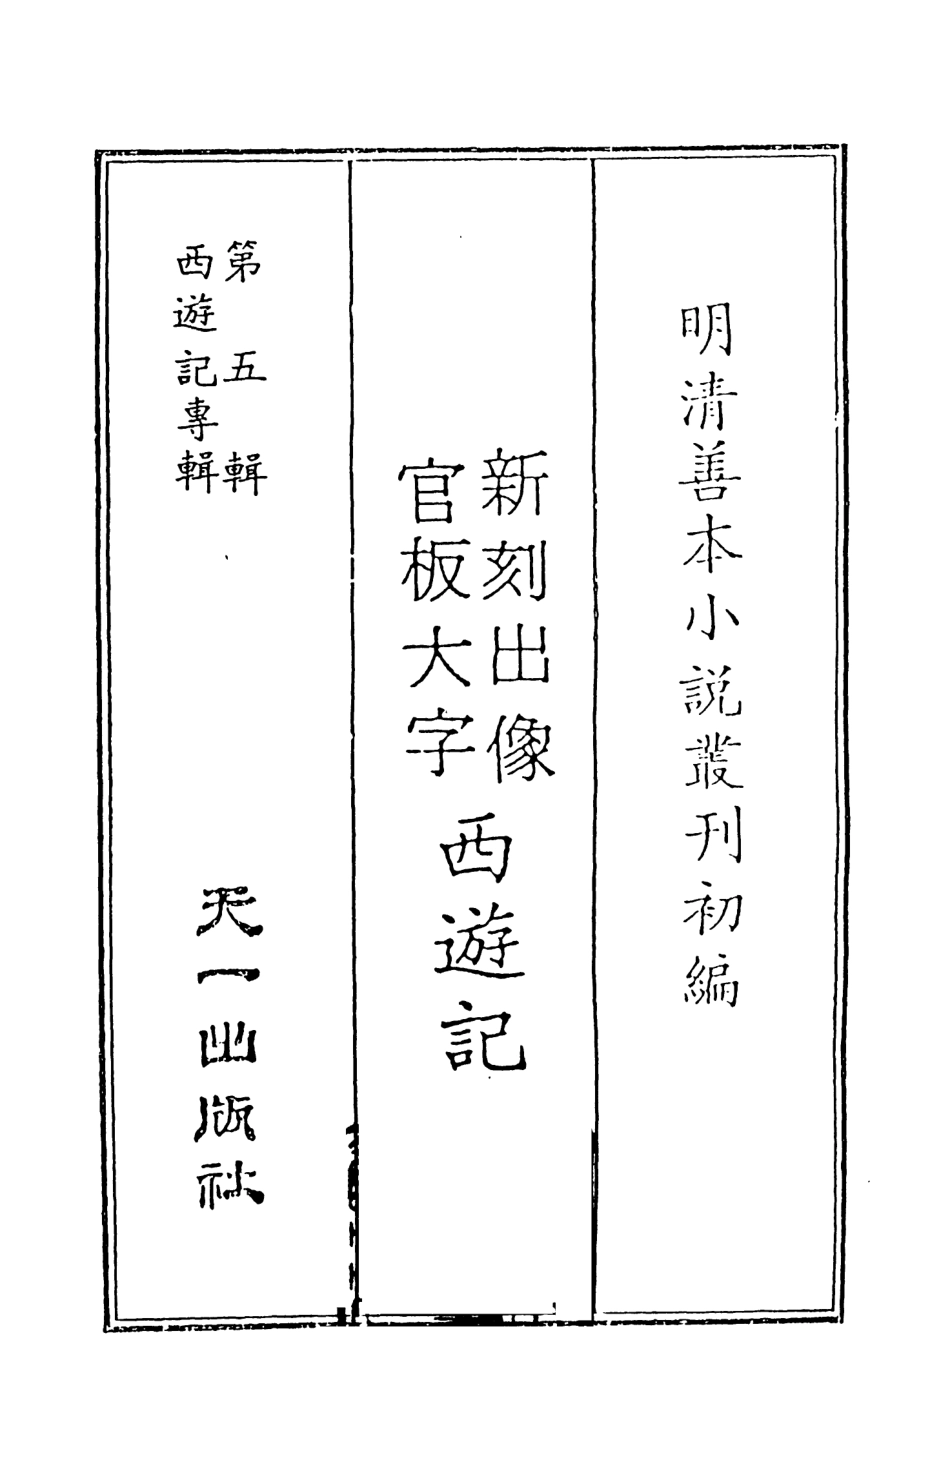 明清善本小説叢刊初編
新刻出像
官板大字
西遊記
第五輯
西遊記專輯
天一出版社